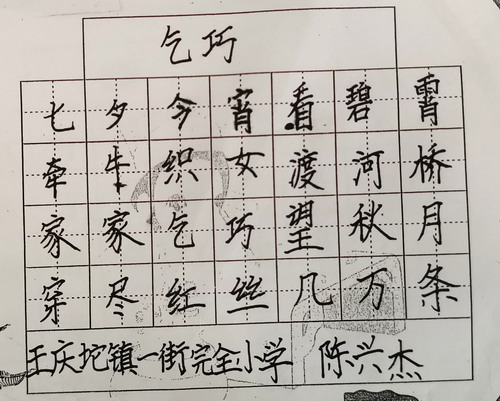 乞巧
七夕今宵看碧霄
牵牛织女渡河桥
家家乞巧望秋月
穿尽红丝几万条
王庆坨镇一街完全小学 陈兴杰